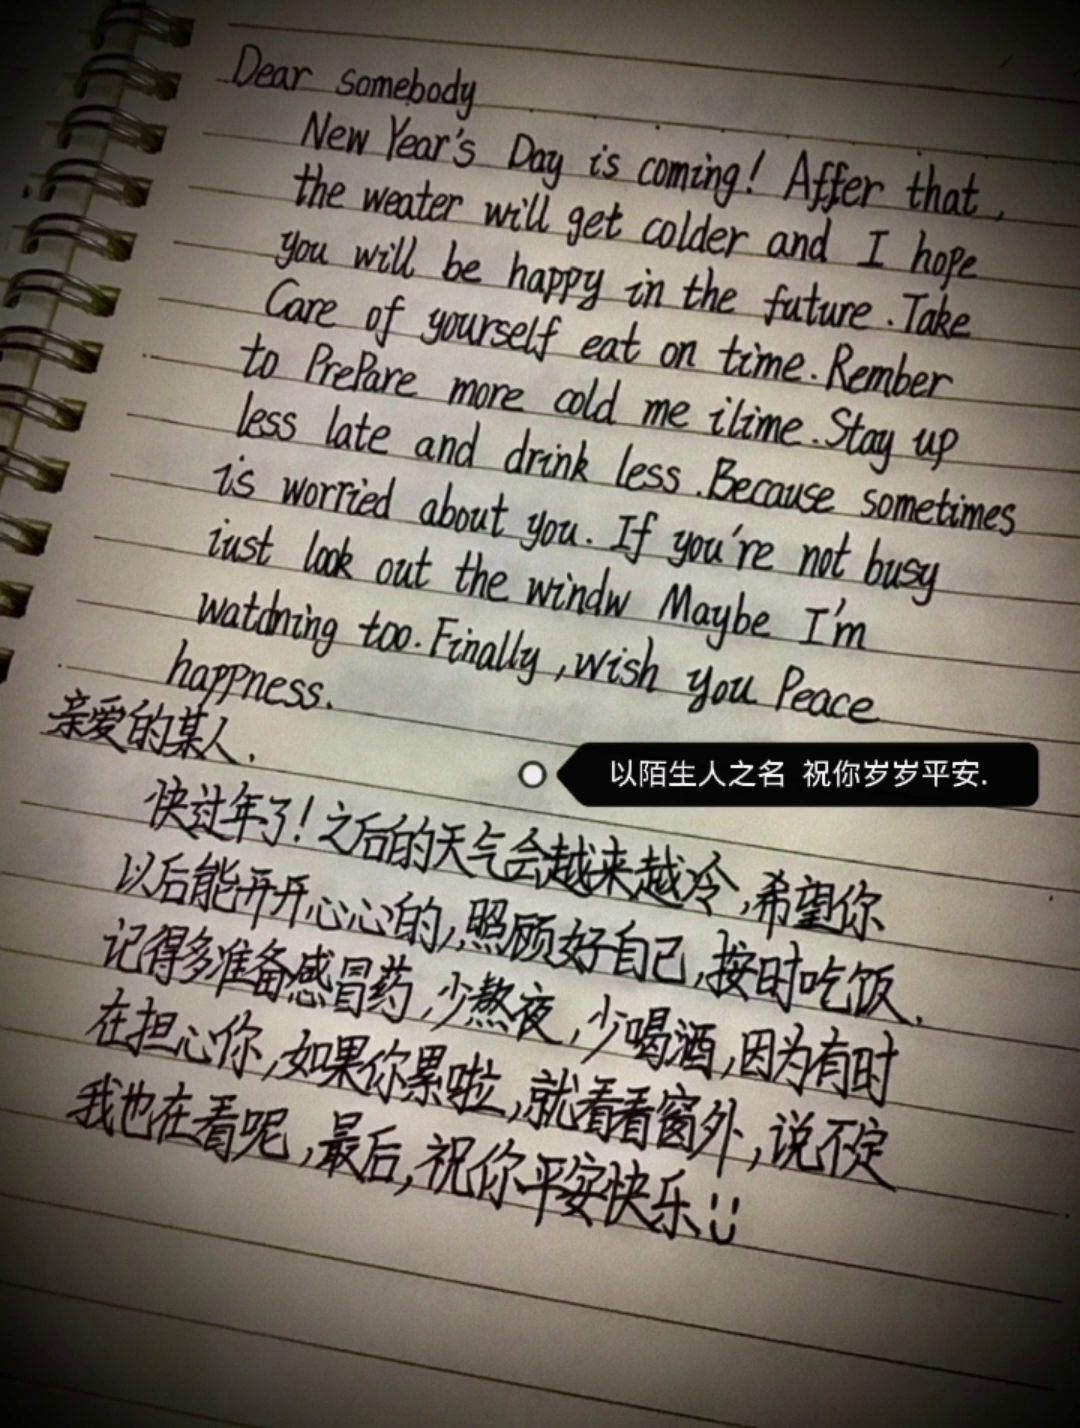 Dear somebody
New Year's Day is coming! Affer that,
the weater will get colder and I hope
you will be happy in the future. Take
Care of yourself eat on time. Rember
to PrePare more cold me ilime. Stay up
less late and drink less. Because sometimes
is worried about you. If you're not busy
iust look out the windw Maybe I'm
watdning too. Finally, wish you Peace
happness.
亲爱的某人.
以陌生人之名 祝你岁岁平安.
快过年了!之后的天气会越来越冷,希望你
以后能开开心心的,照顾好自己,按时吃饭.
记得多准备感冒药,少熬夜,少喝酒,因为有时
在担心你,如果你累啦,就看看窗外,说不定
我也在看呢,最后,祝你平安快乐